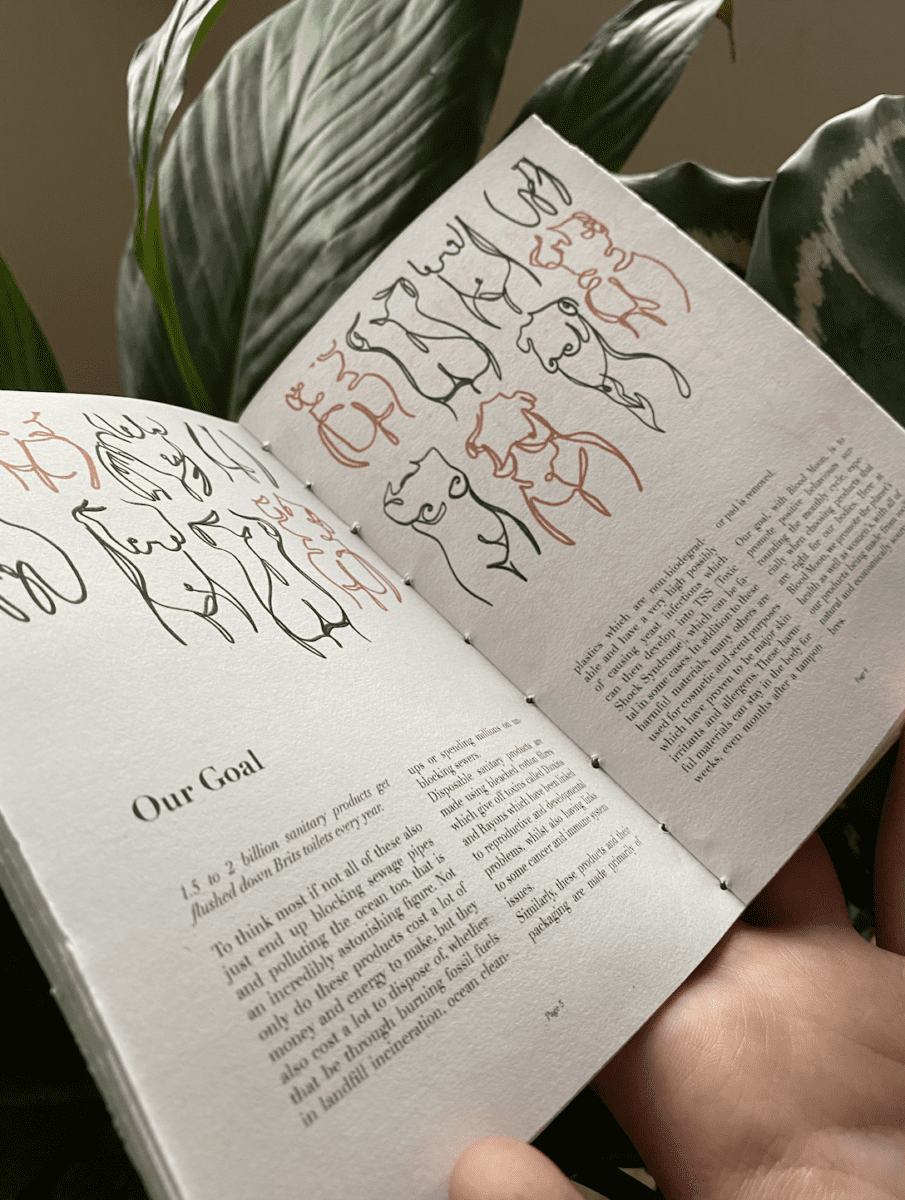 Our Goal
1.5 to 2 billion sanitary products get
flushed down Brits toilets every year.
To think most if not all of these also
just end up blocking sewage pipes
and polluting the ocean too, that is
an incredibly astonishing figure. Not
only do these products cost a lot of
money and energy to make, but they
also cost a lot to dispose of, whether
that be through burning fossil fuels
in landfill incineration, ocean clean-
ups or spending millions on un-
blocking sewers.
Disposable sanitary products are
made using bleached cotton fibres
which give off toxins called Dioxins
and Rayons which have been linked
to reproductive and developmental
problems, whilst also having links
to some cancer and immune system
issues.
Similarly, these products and their
packaging are made primarily of
Page 3
plastics which are non-biodegrad-
able and have a very high possibly
of causing yeast infections which
can then develop into TSS (Toxic
Shock Syndrome), which can be fa-
tal in some cases. In addition to these
harmful materials, many others are
used for cosmetic and scent purposes
which have proven to be major skin
irritants and allergens. These harm-
ful materials can stay in the body for
weeks, even months after a tampon
or pad is removed.
Our goal, with Blood Moon, is to
promote positive behaviours sur-
rounding the monthly cycle, espe-
cially when choosing products that
are right for our bodies. Here at
Blood Moon, we promote the planet's
health as well as women's, with all of
our products being made from
natural and economically
lives.
Page 4